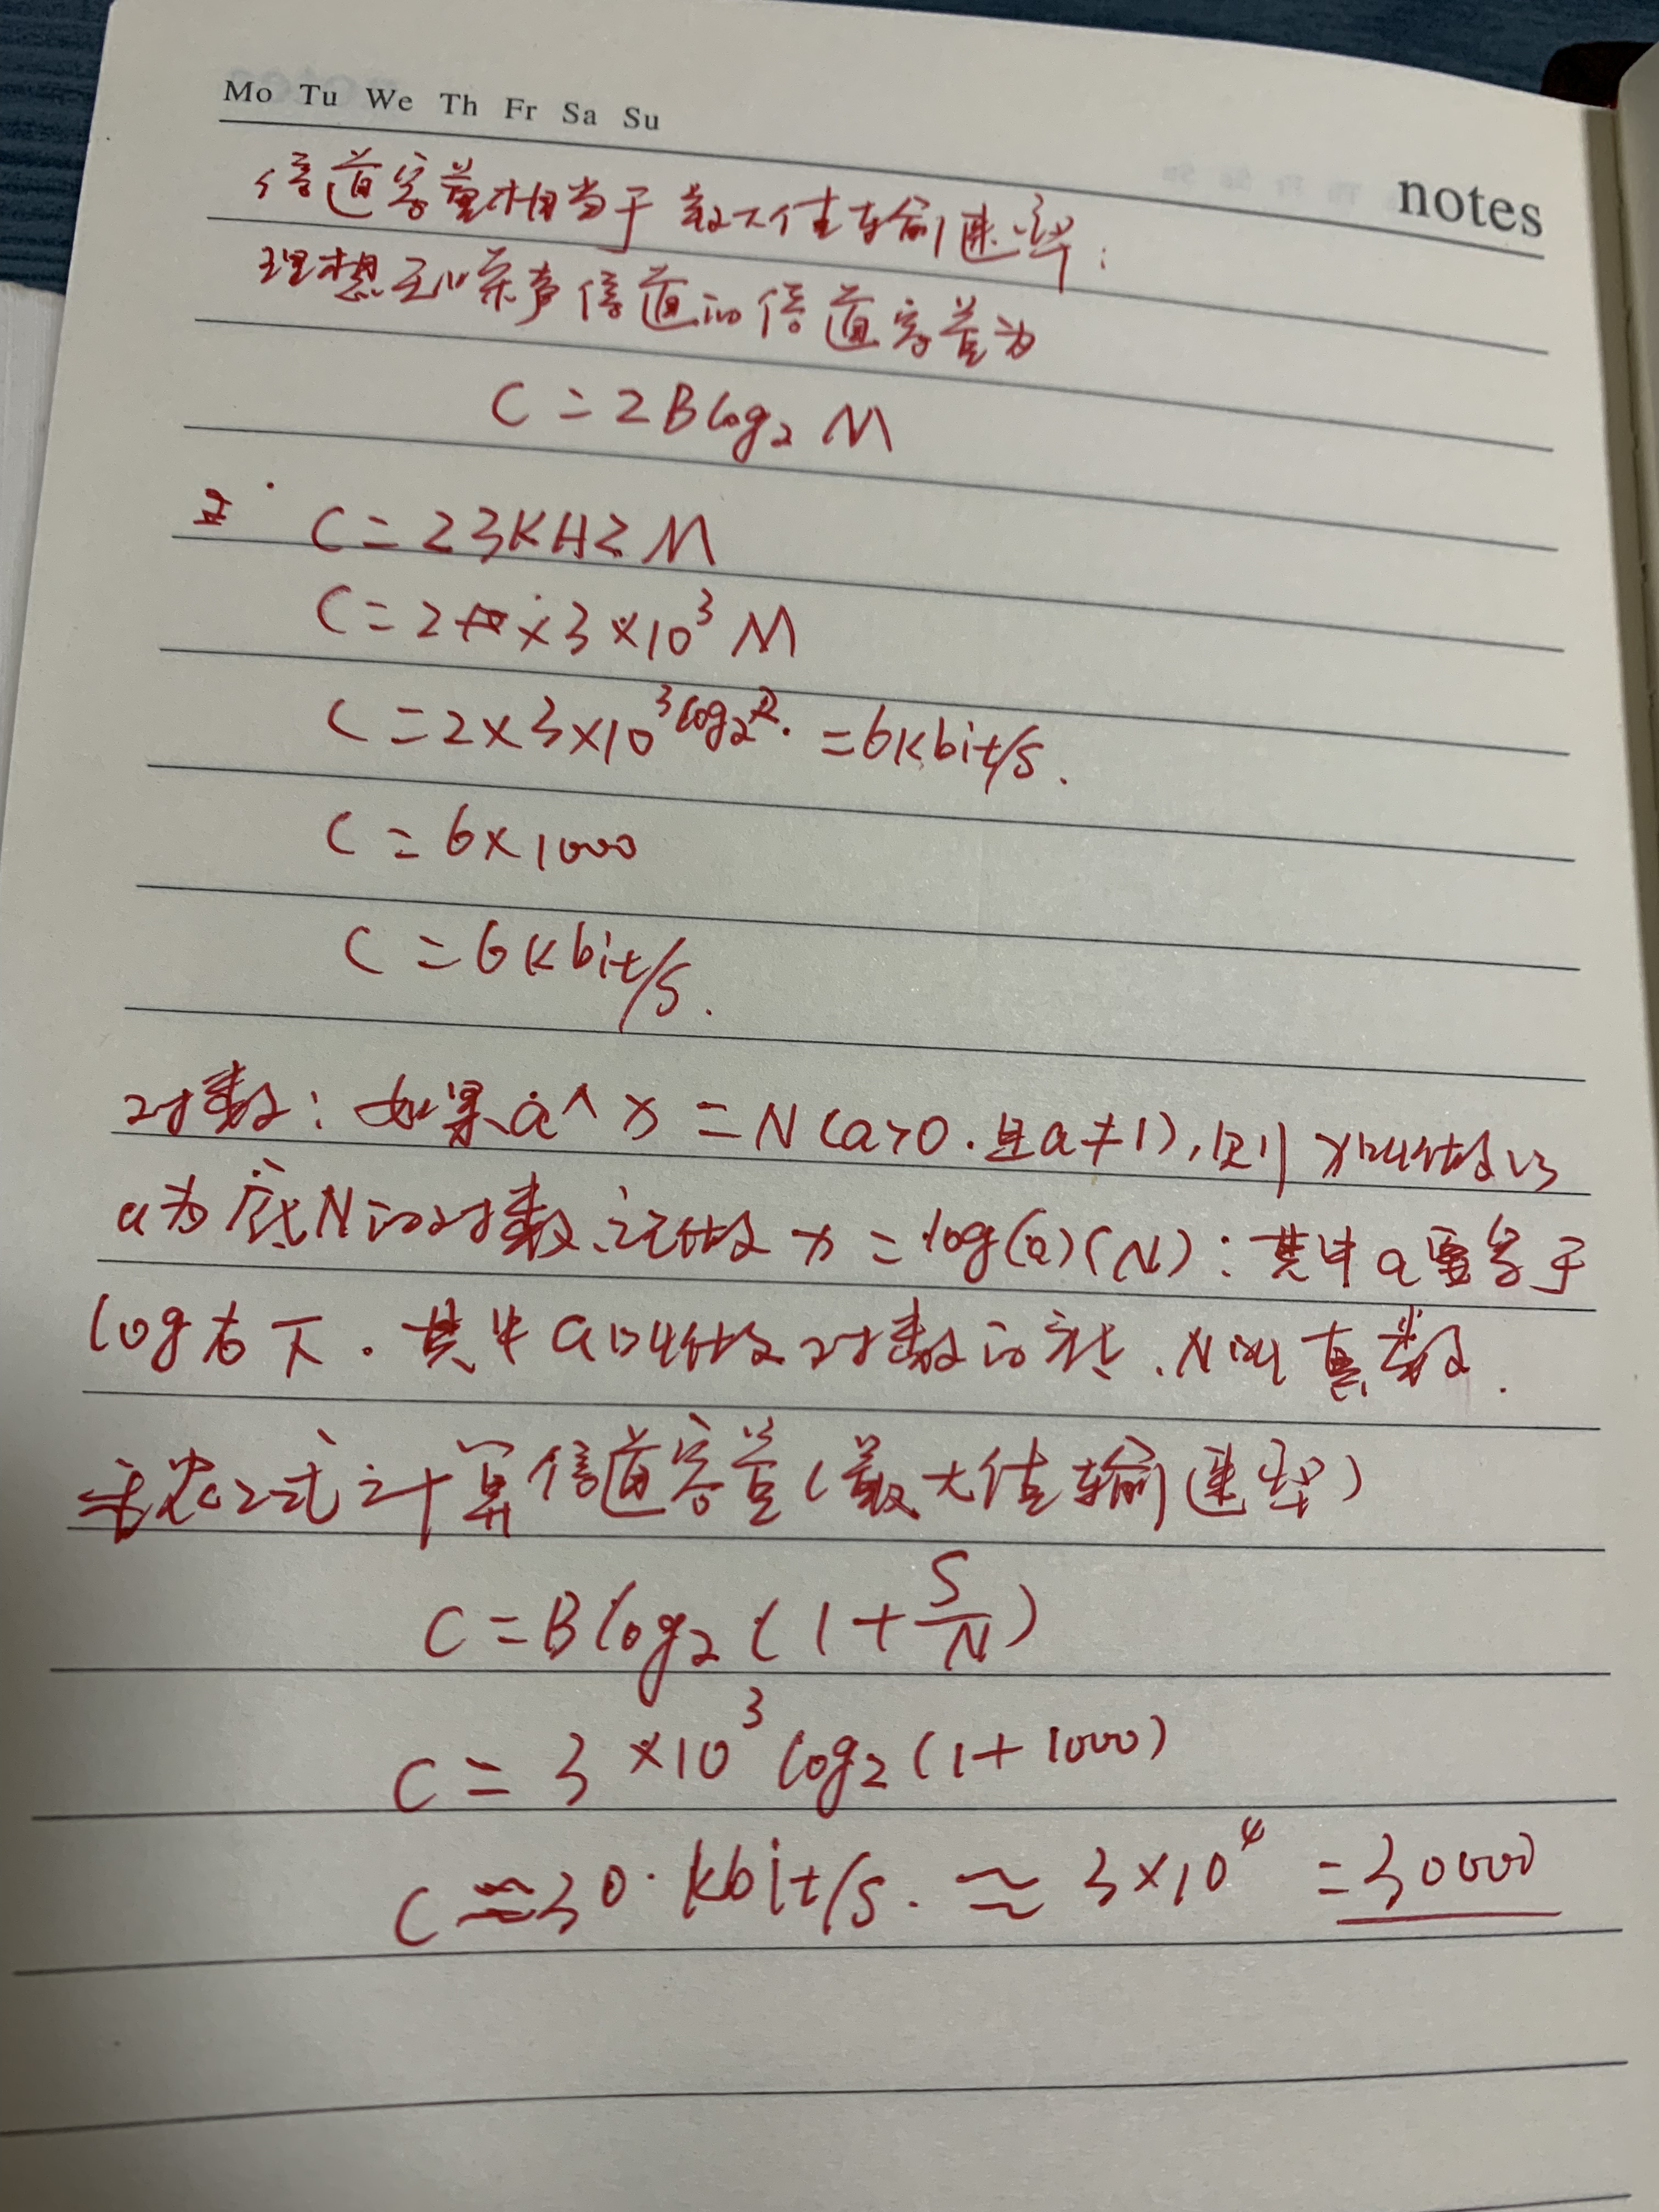 Mo Tu We Th Fr Sa Su
notes
信道容量相当于最大传输速率:
理想无噪声信道的信道容量为
C=2Blog₂M
C=23KHZ M
C=2××3×10³M
C=2×3×10³log₂2.=6kbit/s.
C=6×1000
C=6kbit/s.
对数:如果a^x=N(a>0.且a≠1),则x叫做以
a为底N的对数,记做x=log(a)(N):其中a要写于
log右下.其中a叫做对数的底,N叫真数.
香农公式计算信道容量(最大传输速率)
C=Blog₂(1+S/N)
C=3×10³log₂(1+1000)
C≈30.kbit/s.≈3×10⁴=30000